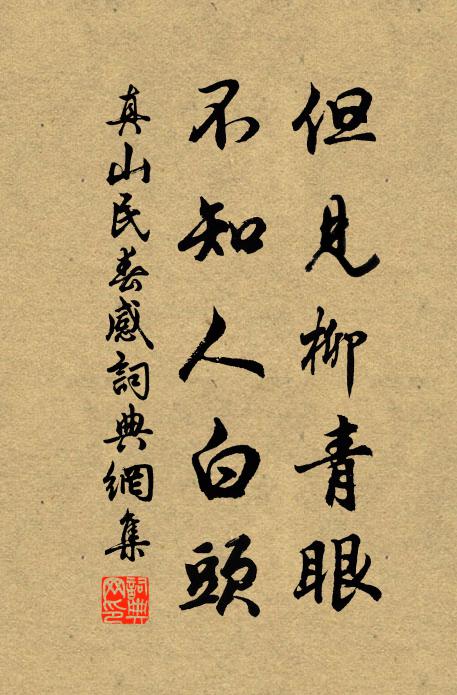 但見柳青眼
不知人白頭
真山民春感詞典網集
詞典網印